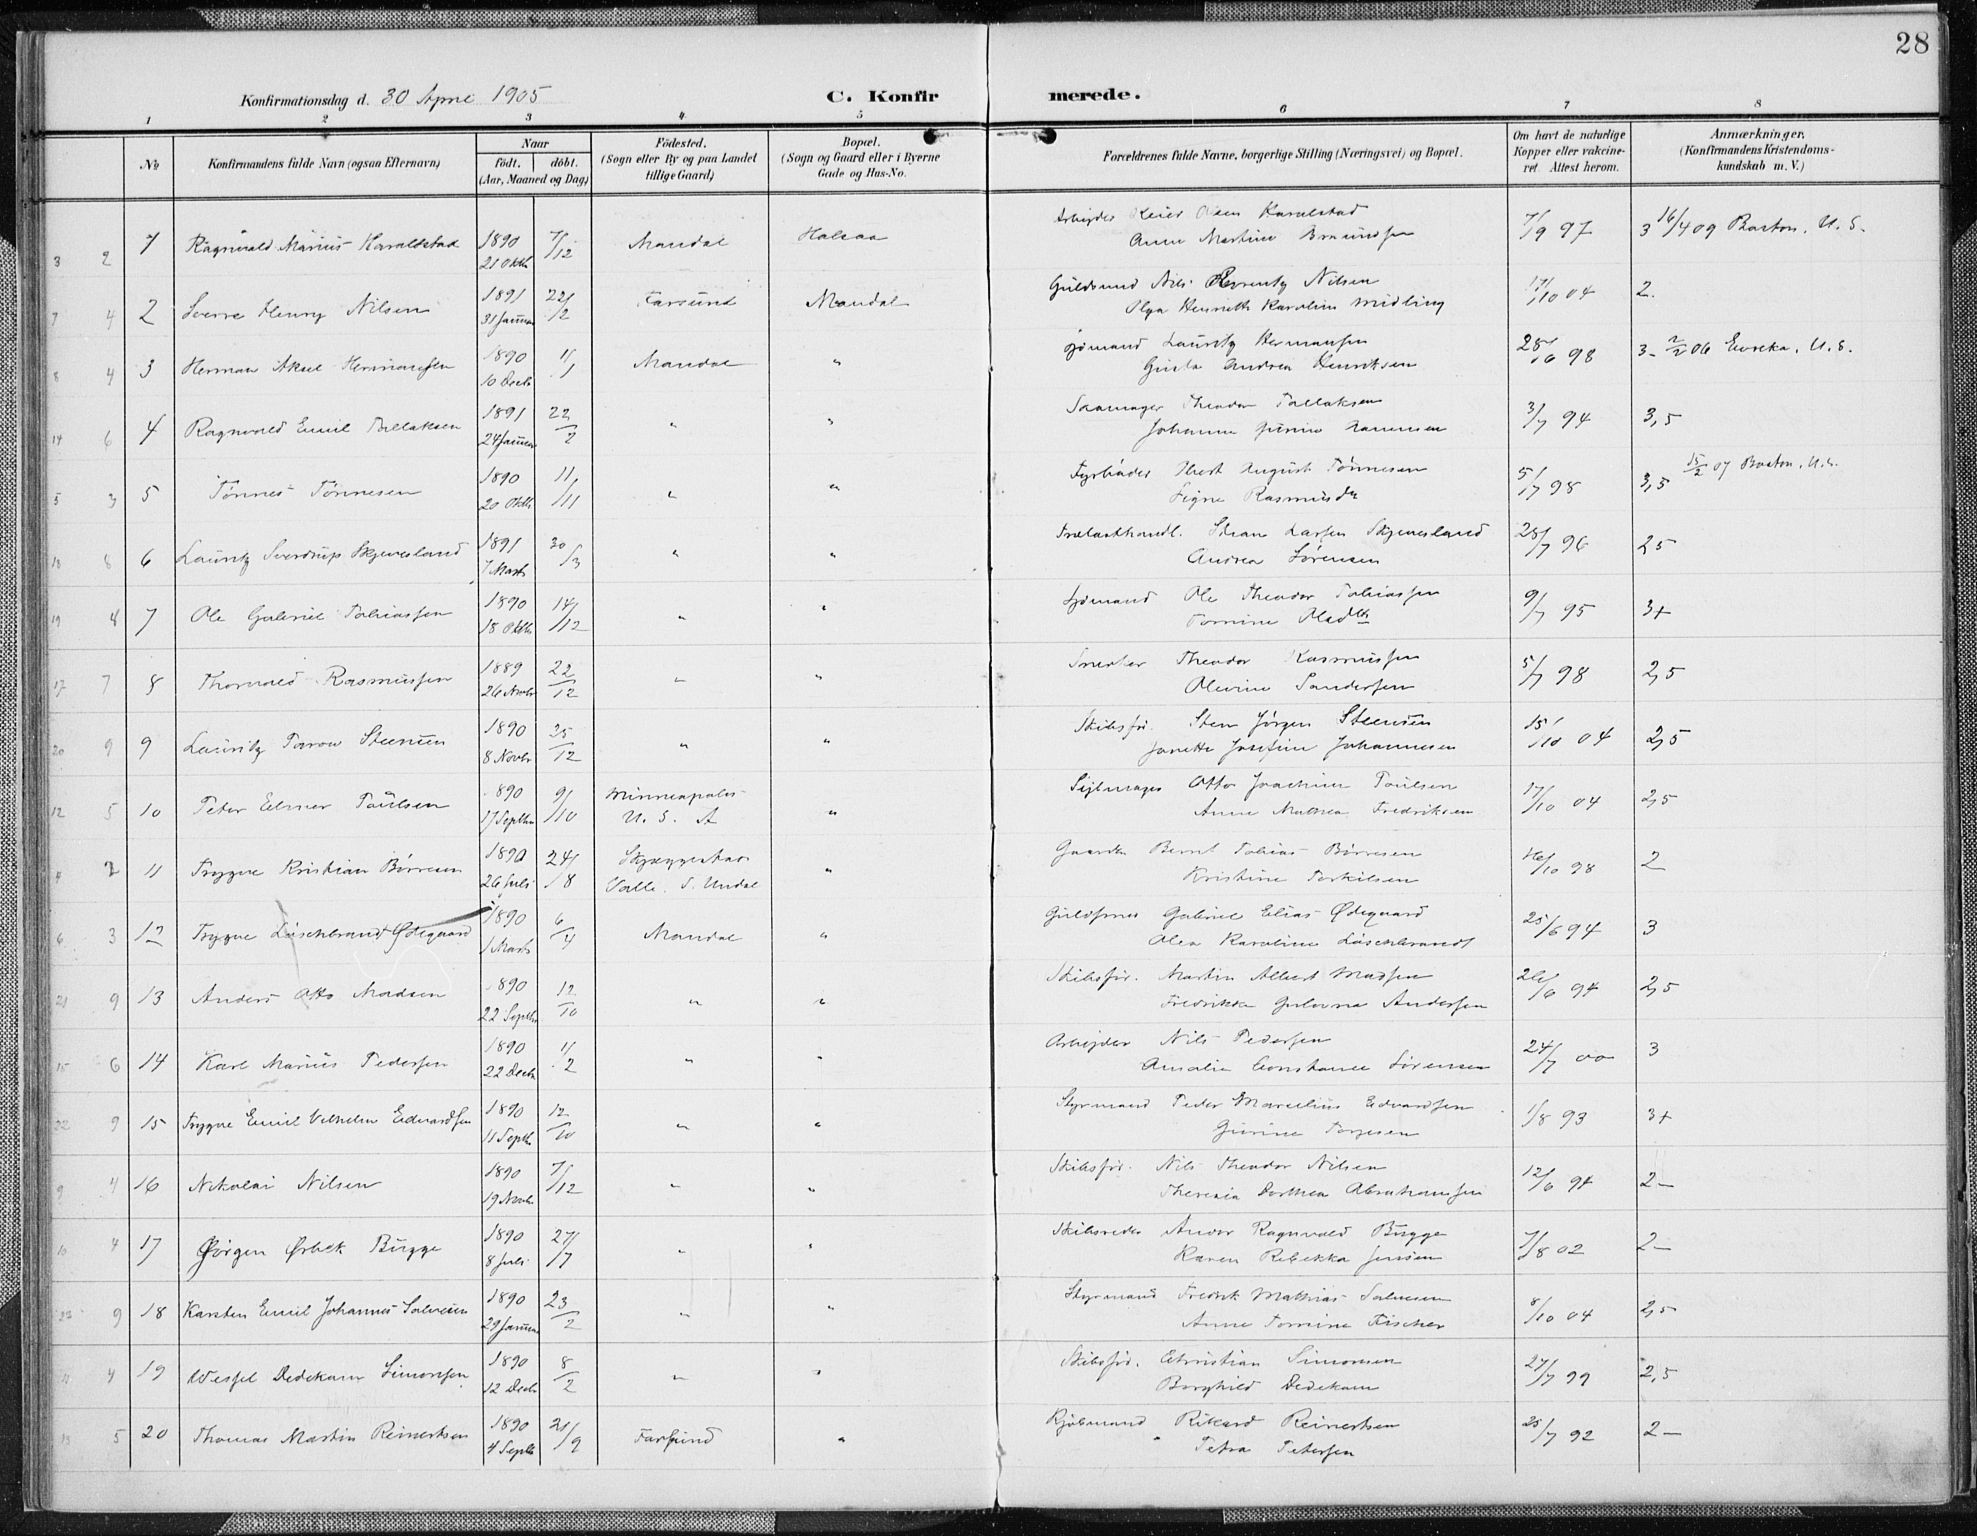 28
Konfirmationsdag d. 30 April 1905
C. Konfir merede.
1 2 3 4 5 6 7 8
No
Konfirmandens fulde Navn (ogsaa Efternavn)
Naar
født. døbt.
(Aar, Maaned og Dag)
Fødested.
(Sogn eller By og paa Landet
tillige Gaard)
Bopæl.
(Sogn og Gaard eller i Byerne
Gade og Hus-No.
Forældrenes fulde Navne, borgerlige Stilling (Næringsvei) og Bopæl.
Om havt de naturlige
Kopper eller vakcine-
ret. Attest herom.
Anmærkninger.
(Konfirmandens Kristendoms-
kundskab m. V.)
3 2 1 Ragnvald Marius Haraldstad 1890 7/12 Mandal Halsaa Arbejder Olsen Haraldstad 7/9 97 3 16/4 09 Boston. U. S.
21 Oktb Anne Martine
7 4 2 Sverre Henry Nilsen 1891 22/2 Farsund Mandal Guldsmed Nils Nilsen 17/10 04 2.
31 Januar Olga Henriette Karoline Midling
8 4 3 Herman Aksel Hermansen 1890 11/1 Mandal " Sjømand Lauritz Hermansen 28/6 98 3- 2/2 06 Evreka. U. S.
10 Decb Andrea Henriksen
14 6 4 Ragnvald Emil Tallaksen 1891 22/2 " " Theodor Tallaksen 3/7 94 3,5
24 Januar Johanne
5 3 5 Tønnes Tønnesen 1890 11/11 " " Fyrbøder August Tønnesen 5/7 98 3,5 15/2 07 Boston. U.S.
20 Oktb Signe Rasmusdtr
18 8 6 Lauritz Sverdrup Skjevesland 1891 30/3 " " Trælasthandl. Larsen Skjevesland 28/7 96 2,5
7 Marts Andrea Sørensen
19 4 7 Ole Gabriel Tobiassen 1890 14/12 " " Sjømand Ole Theodor Tobiassen 9/7 95 3+
18 Oktb Tomine Olsdtr
17 7 8 Thorvald Rasmussen 1889 22/12 " " Snedker Theodor Rasmussen 5/7 98 2,5
26 Novbr Olevine Sandersen
20 9 9 Lauritz Steensen 1890 25/12 " " Skibsfør. Sten Jørgen Steensen 15/10 04 2,5
8 Novbr Janette Josefine Johannesen
12 5 10 Peter Elmer Paulsen 1890 9/10 Minneapolis " Sejlmager Otto Joachim Paulsen 17/10 04 2,5
17 Septbr U. S. A Anne Mathea Fredriksen
4 2 11 Trygve Kristian Børresen 1890 24/8 Skjeggestad " Bernt Tobias Børresen 16/10 98 2
26 Juli Valle. S. Undal Kristine Torkilsen
6 3 12 Trygve Løschbrandt Ødegaard 1890 6/4 Mandal " Gabriel Elias Ødegaard 25/6 94 3
1 Marts Olea Karoline Løschbrandt
21 9 13 Anders Otto Madsen 1890 12/10 " " Skibsfør. Martin Albert Madsen 26/6 94 2,5
22 Septbr Fredrikke Andersen
15 6 14 Karl Marius Pedersen 1890 1/2 " " Arbejder Nils Pedersen 24/7 00 3
22 Decbr Amalie Constance Sørensen
22 9 15 Trygve Emil Vilhelm Edvardsen 1890 12/10 " " Styrmand Peder Marselius Edvardsen 1/8 93 3+
11 Septbr Gurine Torjesen
9 4 16 Nikolai Nilsen 1890 7/12 " " Skibsfør. Nils Theodor Nilsen 12/6 94 2-
19 Novbr Theresia Dorthea Abrahamsen
10 4 17 Jørgen Ørbek Bugge 1890 27/7 " " Skibsreder Andor Ragnvald Bugge 7/8 02 2-
8 Juli Karen Rebekka Jensen
23 9 18 Karsten Emil Johannes Salvesen 1890 23/2 " " Styrmand Fredrik Mathias Salvesen 8/10 04 2,5
29 Januar Anne Tomine Fischer
11 4 19 Wessel Dedekam Simonsen 1890 8/2 " " Skibsfør. Christian Simonsen 27/7 99 2,5
12 Decbr Borghild Dedekam
13 5 20 Thomas Martin Reinertsen 1890 21/9 Farsund " Kjøbmand Rikard Reinertsen 25/7 92 2-
4 Septb Petra Petersen